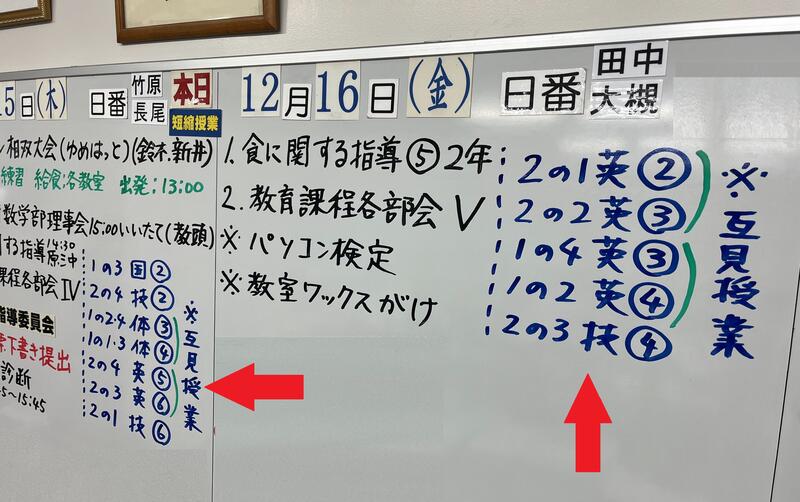 5日(木) 日番 竹原 長尾 本日
短縮授業
相双大会(ゆめはっと)(鈴木、新井)
練習 給食:各教室 出発:13:00
数学部理事会15:00いいたて(教頭)
する指導 14:30 原三中
課程各部会Ⅳ
指導委員会
下書き提出
診断
5〜15:45
1の3 国②
2の4 技②
1の2・4 体③
1の1・3 体④
2の4 英⑤
2の3 英⑥
2の1 技⑥
※互見授業
12月16日(金) 日番 田中 大槻
1. 食に関する指導⑤2年
2. 教育課程各部会Ⅴ
※パソコン検定
※教室ワックスがけ
2の1 英②
2の2 英③
1の4 英③
1の2 英④
2の3 技④
※互見授業